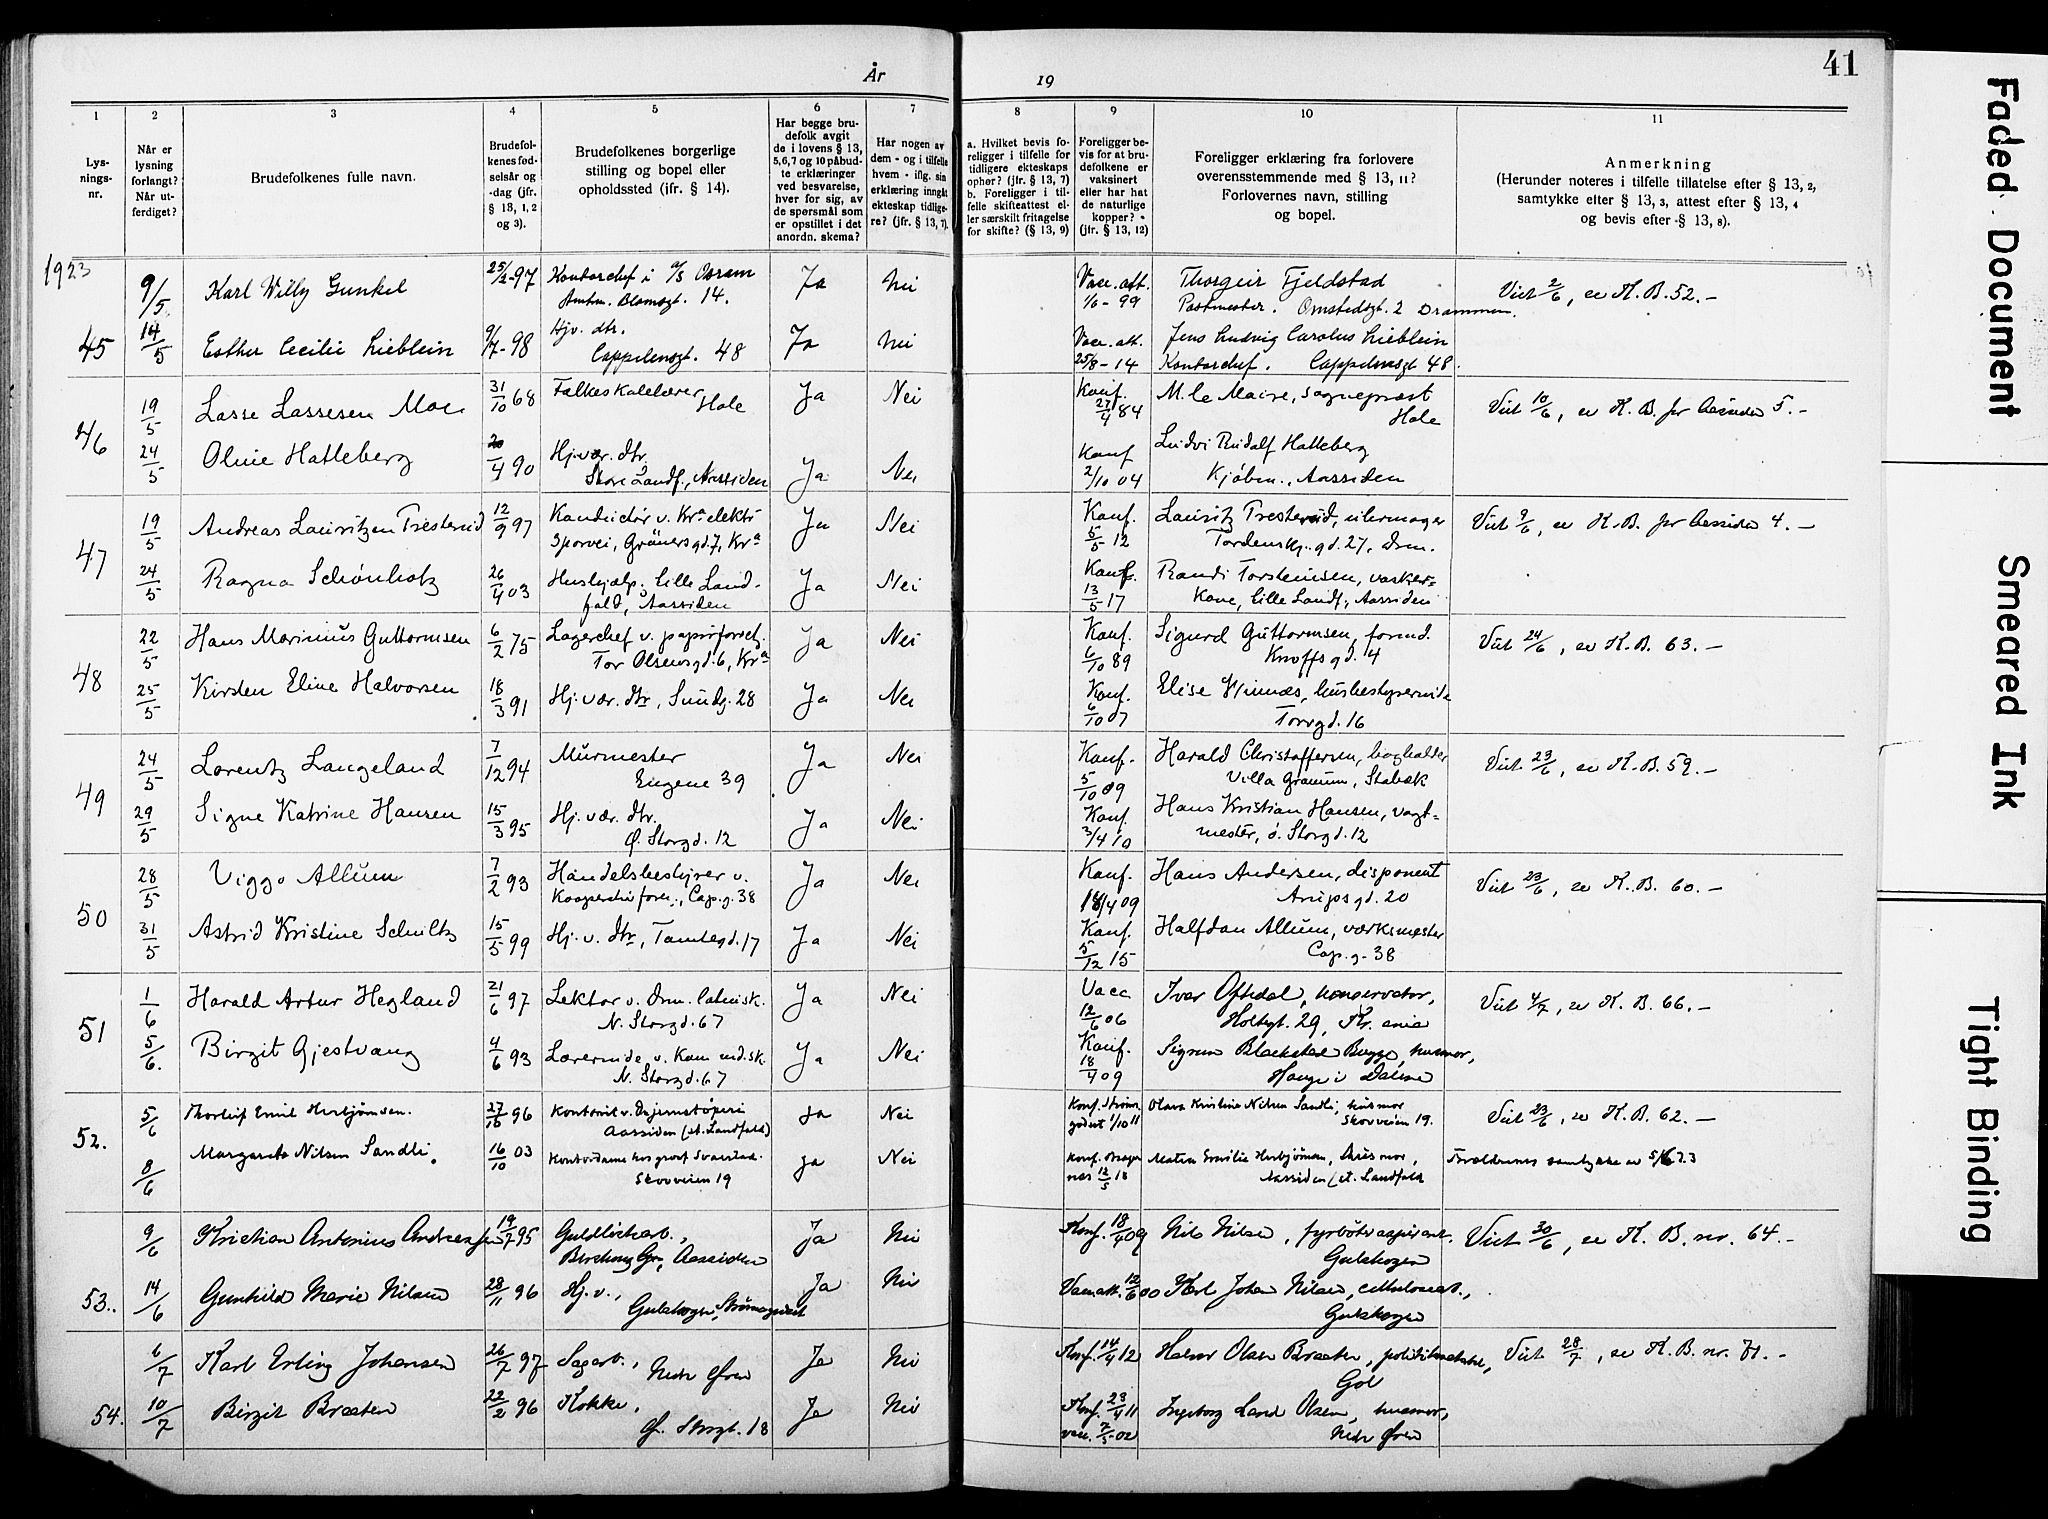 År
19
41
1
2
3
4
5
6
7
8
9
10
11
Lys-
nings-
nr.
Når er
lysning
forlangt?
Når ut-
ferdiget?
Brudefolkenes fulle navn.
Brudefol-
kenes fød-
selsår og
-dag (jfr.
§ 13, 1, 2
og 3).
Brudefolkenes borgerlige
stilling og bopel eller
opholdssted (ifr. § 14).
Har begge bru-
defolk avgit
de i lovens § 13,
5,6,7 og 10 påbud-
te erklæringer
ved besvarelse,
hver for sig, av
de spørsmål som
er opstillet i det
anordn. skema?
Har nogen av
dem - og i tilfelle
hvem - iflg. sin
erklæring inngått
ekteskap tidlige-
re? (jfr. § 13, 7).
a. Hvilket bevis fo-
religger i tilfelle for
tidligere ekteskaps
ophør? (jfr. § 13, 7)
b. Foreligger i til-
felle skifteattest el-
ler særskilt fritagelse
for skifte? (§ 13, 9)
Foreligger be-
vis for at bru-
defolkene er
vaksinert
eller har hat
de naturlige
kopper? -
(jfr. § 13, 12)
Foreligger erklæring fra forlovere
overensstemmende med § 13, 11?
Forlovernes navn, stilling
og bopel.
Anmerkning
(Herunder noteres i tilfelle tillatelse efter § 13, 2,
samtykke efter § 13, 3, attest efter § 13, 4
og bevis efter § 13, 8).
1923
9/5 Karl Willy Gunkel 25/2-97 Kontorchef i A/S Osram Ja Nei Vacc. att. Thorgeir Fjeldstad Viet 2/6, se K.B. 52.-
Amtm. Blomsgt. 14. 1/6 - 99 Postmester. Omstedsgt. 2 Drammen.
45 14/5 Esther Cecilie Lieblein 9/7-98 Hjv. dtr. Ja Nei Vacc. att. Jens Ludvig Carolus Lieblein
Cappelensgt. 48 25/8 - 14 Kontorchef. Cappelensgt 48.
46 19/5 Lasse Lassesen Moe 31/10 68 Folkeskolelærer Ja Nei Konf. M. le Maire, sogneprest Viet 10/6, se K. B. for Aassiden 5.-
Hole 27/4 84 Hole
24/5 Oline Hatleberg /4 90 Hj. vær. dtr. Ja Nei Konf Ludvi Rudolf Hatleberg
Store Landf., Aassiden 2/10 04 Kjøbm., Aassiden
47 19/5 Andreas Lauritzen Tresterud 12/9 97 Konduktør v. Kra elektr. Ja Nei Konf. Lauritz Tresterud, Viet 9/6, se K. B. for Aassiden 4.-
Sporvei, Grünersgd. 7, Kra 5/5 12 Tordenskj. gd. 27, Drm.
24/5 Ragna Schønholz 26/4 03 Hushjelp. Lille Land- Ja Nei Konf. Randi Torsteinsen, vasker-
fald, Aassiden 13/5 17 kone, Lille Landf., Aassiden
48 22/5 Hans Marinius Guttormsen 6/2 75 Lagerchef v. papirforretn. Ja Nei Konf. Sigurd Guttormsen, formd. Viet 24/6, se K. B. 63.-
Tor Olsensgd. 6, Kra 6/10 89 Knoffsgd. 4
25/5 Kirsten Eline Halvorsen 18/3 91 Hj. vær. dtr, Sundg. 28 Ja Nei Konf. Elise husbestyrerinde
6/10 07 Torvgd. 16
49 24/5 Lorentz Langeland 7/12 94 Murmester Ja Nei Konf. Harald Christoffersen, bogholder Viet 23/6, se K. B. 59.-
Engene 39 5/10 09 Villa Granum, Stabæk
29/5 Signe Katrine Hansen 15/3 95 Hj. vær. dtr. Ja Nei Konf. Hans Kristian Hansen, vagt-
Ø. Storgd. 12 3/4 10 mester, ø. Storgd. 12
50 28/5 Viggo Allum 7/2 93 Handelsbestyrer v. Ja Nei Konf. Hans Andersen, disponent Viet 23/6, se K. B. 60.-
Kooperativ foren., Cap. g. 38 18/4 09 Arupsgd. 20
31/5 Astrid Kristine Schultz 15/5 99 Hj. v. dtr, Tomtegd. 17 Ja Nei Konf. Halfdan Allum, værksmester
5/12 15 Cap. g. 38
51 1/6 Harald Artur Hegland 21/6 97 Lektor v. Drm. latinsk. Ja Nei Vacc Ivar Oftedal, konservator, Viet 4/7, se K. B. 66.-
N. Storgd. 67 12/6 06 Holtegt. 29, Kr. ania
5/6. Birgit Gjestvang 4/6 93 Lærerinde v. Kom. md. sk. Ja Nei Konf. Sigrun Blackstad Bugge, husmor,
N. Storgd. 67 18/4 09 Hauge i Dalene
52. 5/6 Thorleif Emil Herbjørnsen. 27/10 96 Kontorist v. Drjernstøperi Ja Nei Konf. Strøms- Olava Kristine Nilsen Sandli, husmor Viet 23/6, se K. B. 62.-
Aassiden (st. Landfald) godset 1/10 11 Skovveien 19.
8/6 Margareta Nilsen Sandli. 16/10 03 Kontordame hos grosf Svarstad. Ja Nei Konf. Brager- Matea Emilie Herbjørnsen, husmor, Forældrenes samtykke av 5/6 23
Skovveien 19 nes 12/5 18 Aassiden (st. Landfald
9/6 Kristian Antonius Andreassen 19/7 95 Guldlistarb., Ja Nei Konf. 18/4 09 Nils Nilsen, fyrbøteraspirant. Viet 30/6, se K. B. nr. 64.-
Aassiden Gulskogen
53. 14/6 Gunhild Marie Nilsen 28/11 96 Hj. v., Ja Nei Vacc. att. 12/6 00 Karl Johan Nilsen, cellulosearb.,
Gulskogen, Strømsgodset Gulskogen
6/7 Karl Erling Johansen 26/7 97 Sagarb., Ja Nei Konf. 14/4 12 Halvor Olsen Braaten, politibetjent, Viet 28/7, se K. B. nr. 71.-
Nedr Øren Gol
54. 10/7 Birgit Braaten 22/2 96 Kokke, Ja Nei Konf. 23/4 11 Ingeborg Lund Olsen, husmor,
Ø. Storgt. 18 vacc. 7/5-02 Nedr Øren
Faded Document
Smeared Ink
Tight Binding